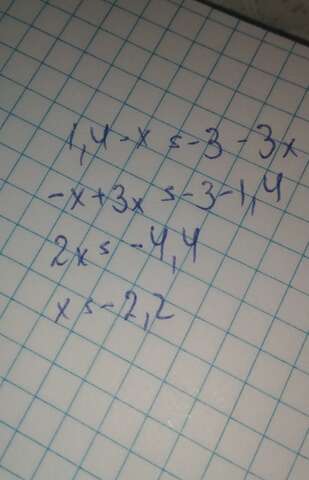 1,4-x=-3-3x
-x+3x=-3-1,4
2x=-4,4
x=-2,2